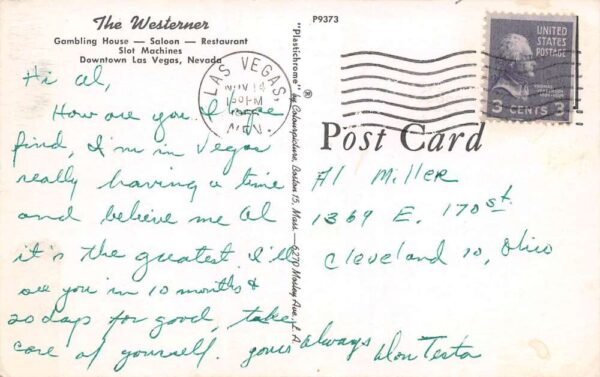 The Westerner
Gambling House — Saloon — Restaurant
Slot Machines
Downtown Las Vegas, Nevada
P9373
UNITED
STATES
POSTAGE
THOMAS
JEFFERSON
3 CENTS 3
LAS VEGAS,
NOV 14
PM
NEV.
"Plastichrome" ® by Colourpicture, Boston 15, Mass — 6270 Mosley Ave. L. A.
Post Card
Hi Al,
How are you. I hope
find, I'm in Vegas
really having a time
and believe me Al
it's the greatest I'll
see you in 10 months &
20 days for good, take
care of yourself. yours always Don Testa
Al Miller
1369 E. 170 st.
Cleveland 10, Ohio